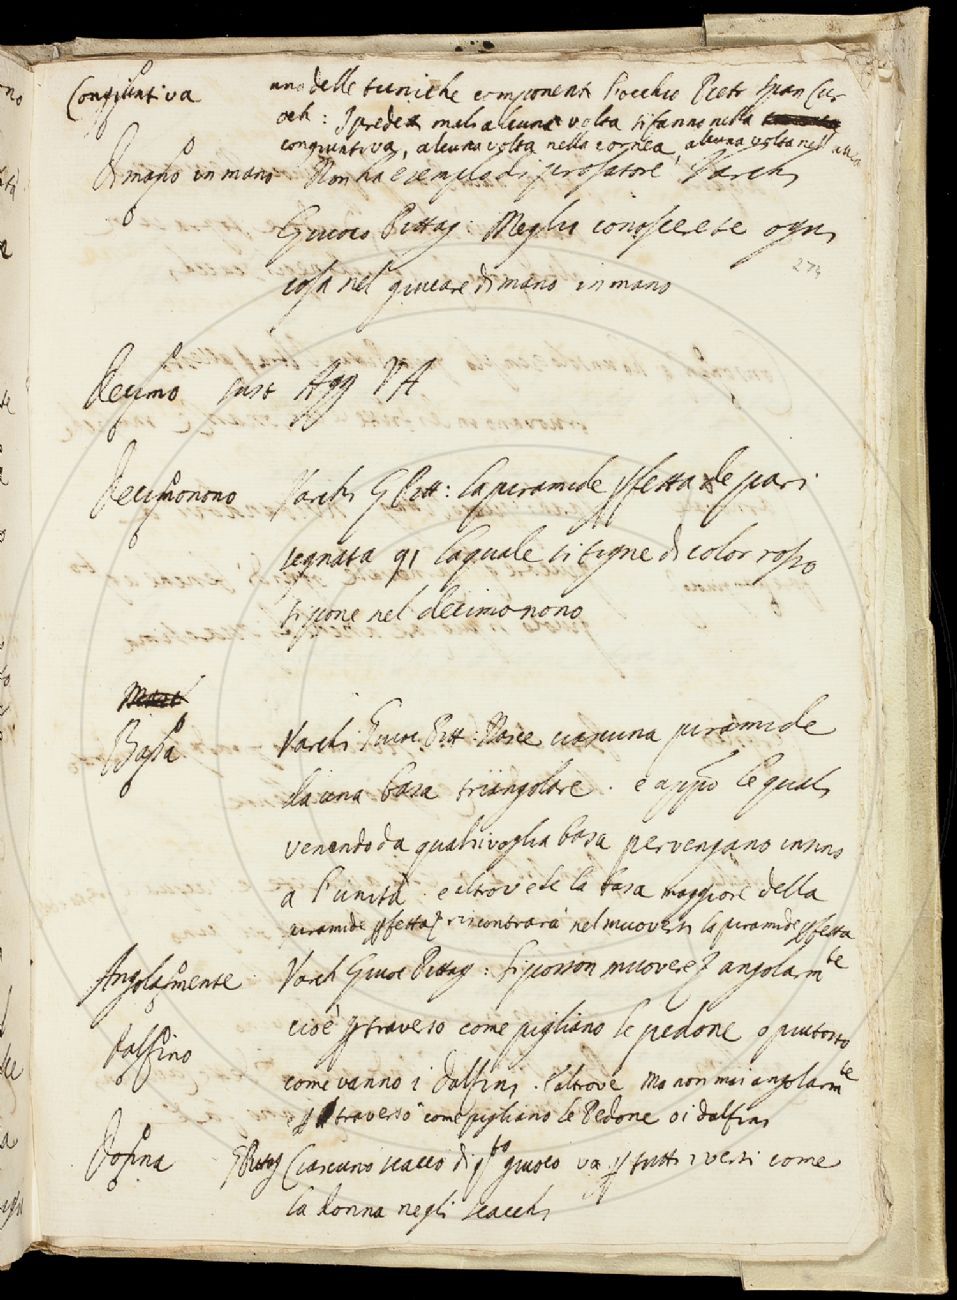 Congiuntiva una delle tuniche componenti l'occhio Pietr Span Cur
och: I predetti mali alcuna volta si fanno nella
congiuntiva, alcuna volta nella cornea, alcuna volta nell
Di mano in mano Non ha esempio di prosatore Varchi
Giuoco Pittag: Meglio conoscerete ogni
cosa nel giucare di mano in mano
274
Decimo sust Agg VA
Decimonono Varchi G Pitt: la piramide pfetta de pari
segnata 91 la quale si signe di color rosso
si pone nel decimonono
Basa Varchi Giuoc Pitt: Nasce ciascuna piramide
da una basa triangolare. e appo le quali
venendo da qualsivoglia basa pervengano insino
a l'unità. e altrove se la basa maggiore della
piramide pfetta rincontrarà nel muoversi la piramide pfetta
Angolarmente Varch Giuoc Pittag: si posson muovere angolarmte
cioè p traverso come pigliano le pedone o piutosto
Dalfino come vanno i dalfini. e altrove Ma non mai angolarmte
e p traverso come pigliano le Pedone o i dalfini
G Pittag Ciascuno scacco di qto giuoco va p tutti i versi come
la donna negli scacchi